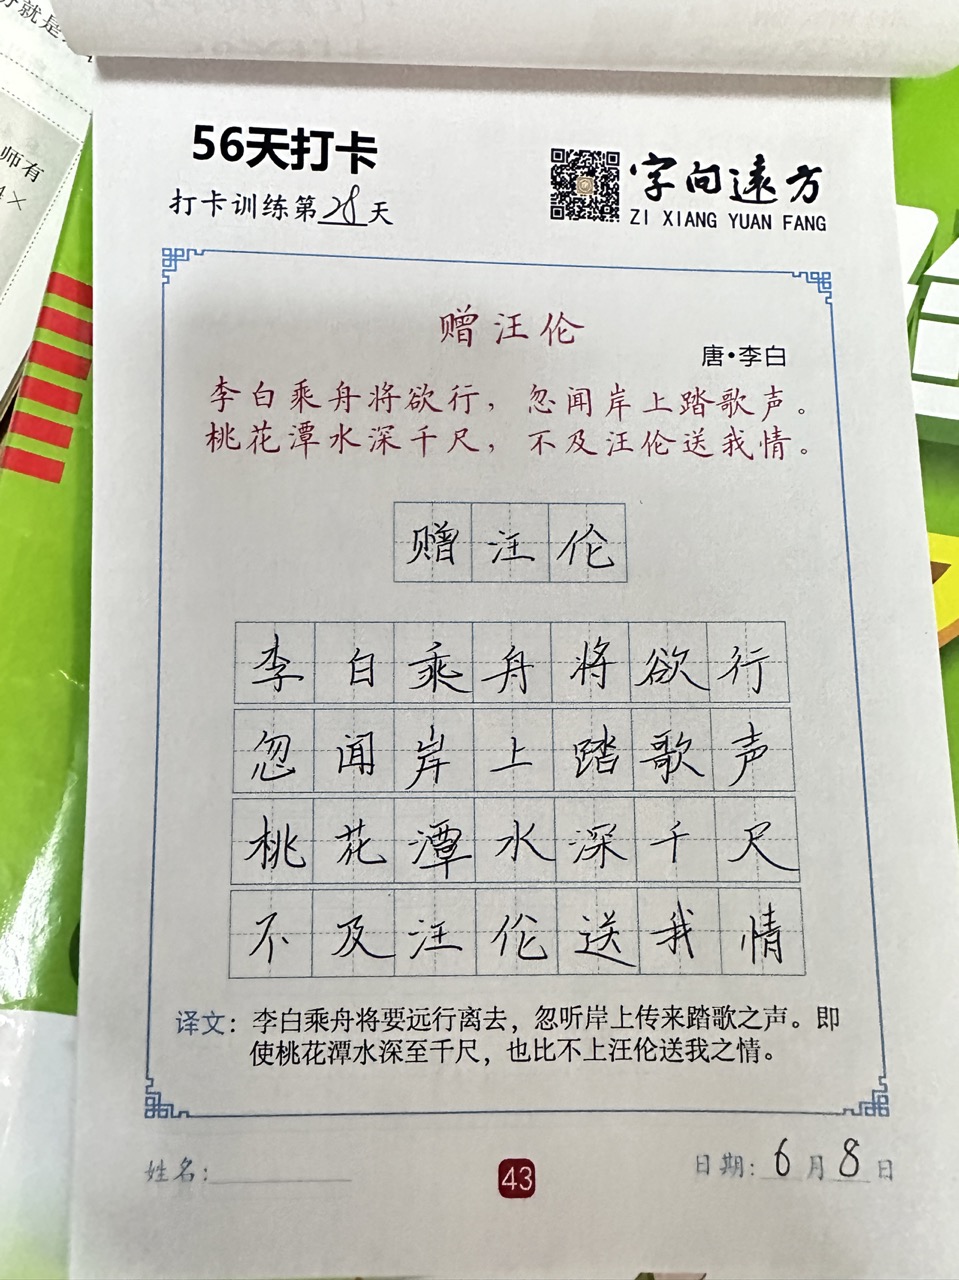 师有
56天打卡
字向远方
打卡训练第28天
ZI XIANG YUAN FANG
赠汪伦
唐·李白
李白乘舟将欲行，忽闻岸上踏歌声。
桃花潭水深千尺，不及汪伦送我情。
赠汪伦
李白乘舟将欲行
忽闻岸上踏歌声
桃花潭水深千尺
不及汪伦送我情
译文：李白乘舟将要远行离去，忽听岸上传来踏歌之声。即
使桃花潭水深至千尺，也比不上汪伦送我之情。
姓名：
43
日期：6月8日